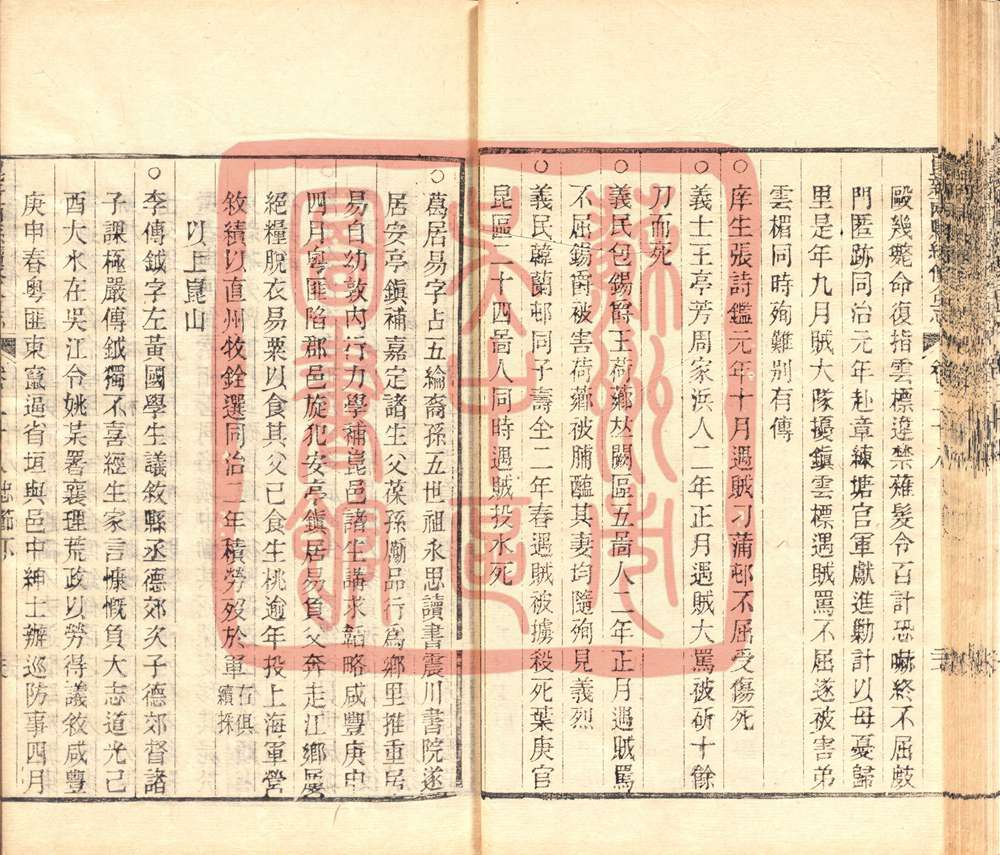 毆幾斃命復指雲標違禁薙髮令百計恐嚇終不屈鼓
門匿跡同治元年赴章練塘官軍獻進勦計以母憂歸
里是年九月賊大隊擾鎮雲標遇賊罵不屈遂被害弟
雲楣同時殉難別有傳
○庠生張詩鑑元年十月遇賊刁蒲邨不屈受傷死
義士王亭芳周家浜人二年正月遇賊大罵被斫十餘
刀而死
○義民包錫爵王荷薌在闕區五啚人二年正月遇賊罵
不屈錫爵被害荷薌被脯醢其妻均隨殉見義烈
○義民韓蘭邨同子壽全二年春遇賊被擄殺死葉庚官
昆區二十四啚人同時遇賊投水死
○葛居易字占五綸裔孫五世祖永思讀書震川書院遂
居安亭鎮補嘉定諸生父葆孫勵品行爲鄉里推重居
易自幼敦內行力學補崑邑諸生講求韜略咸豐庚申
四月粵匪陷郡邑旋犯安亭鎮居易負父奔走江鄉屢
絕糧脫衣易粟以食其父己食生桃逾年投上海軍營
敘績以直州牧銓選同治二年積勞歿於軍 右俱續採
以上崑山
○李傳鉞字左黃國學生議敘縣丞德郊次子德郊督諸
子課極嚴傳鉞獨不喜經生家言慷慨負大志道光己
酉大水在吳江令姚某署襄理荒政以勞得議敘咸豐
庚申春粵匪東竄逼省垣與邑中紳士辦巡防事四月